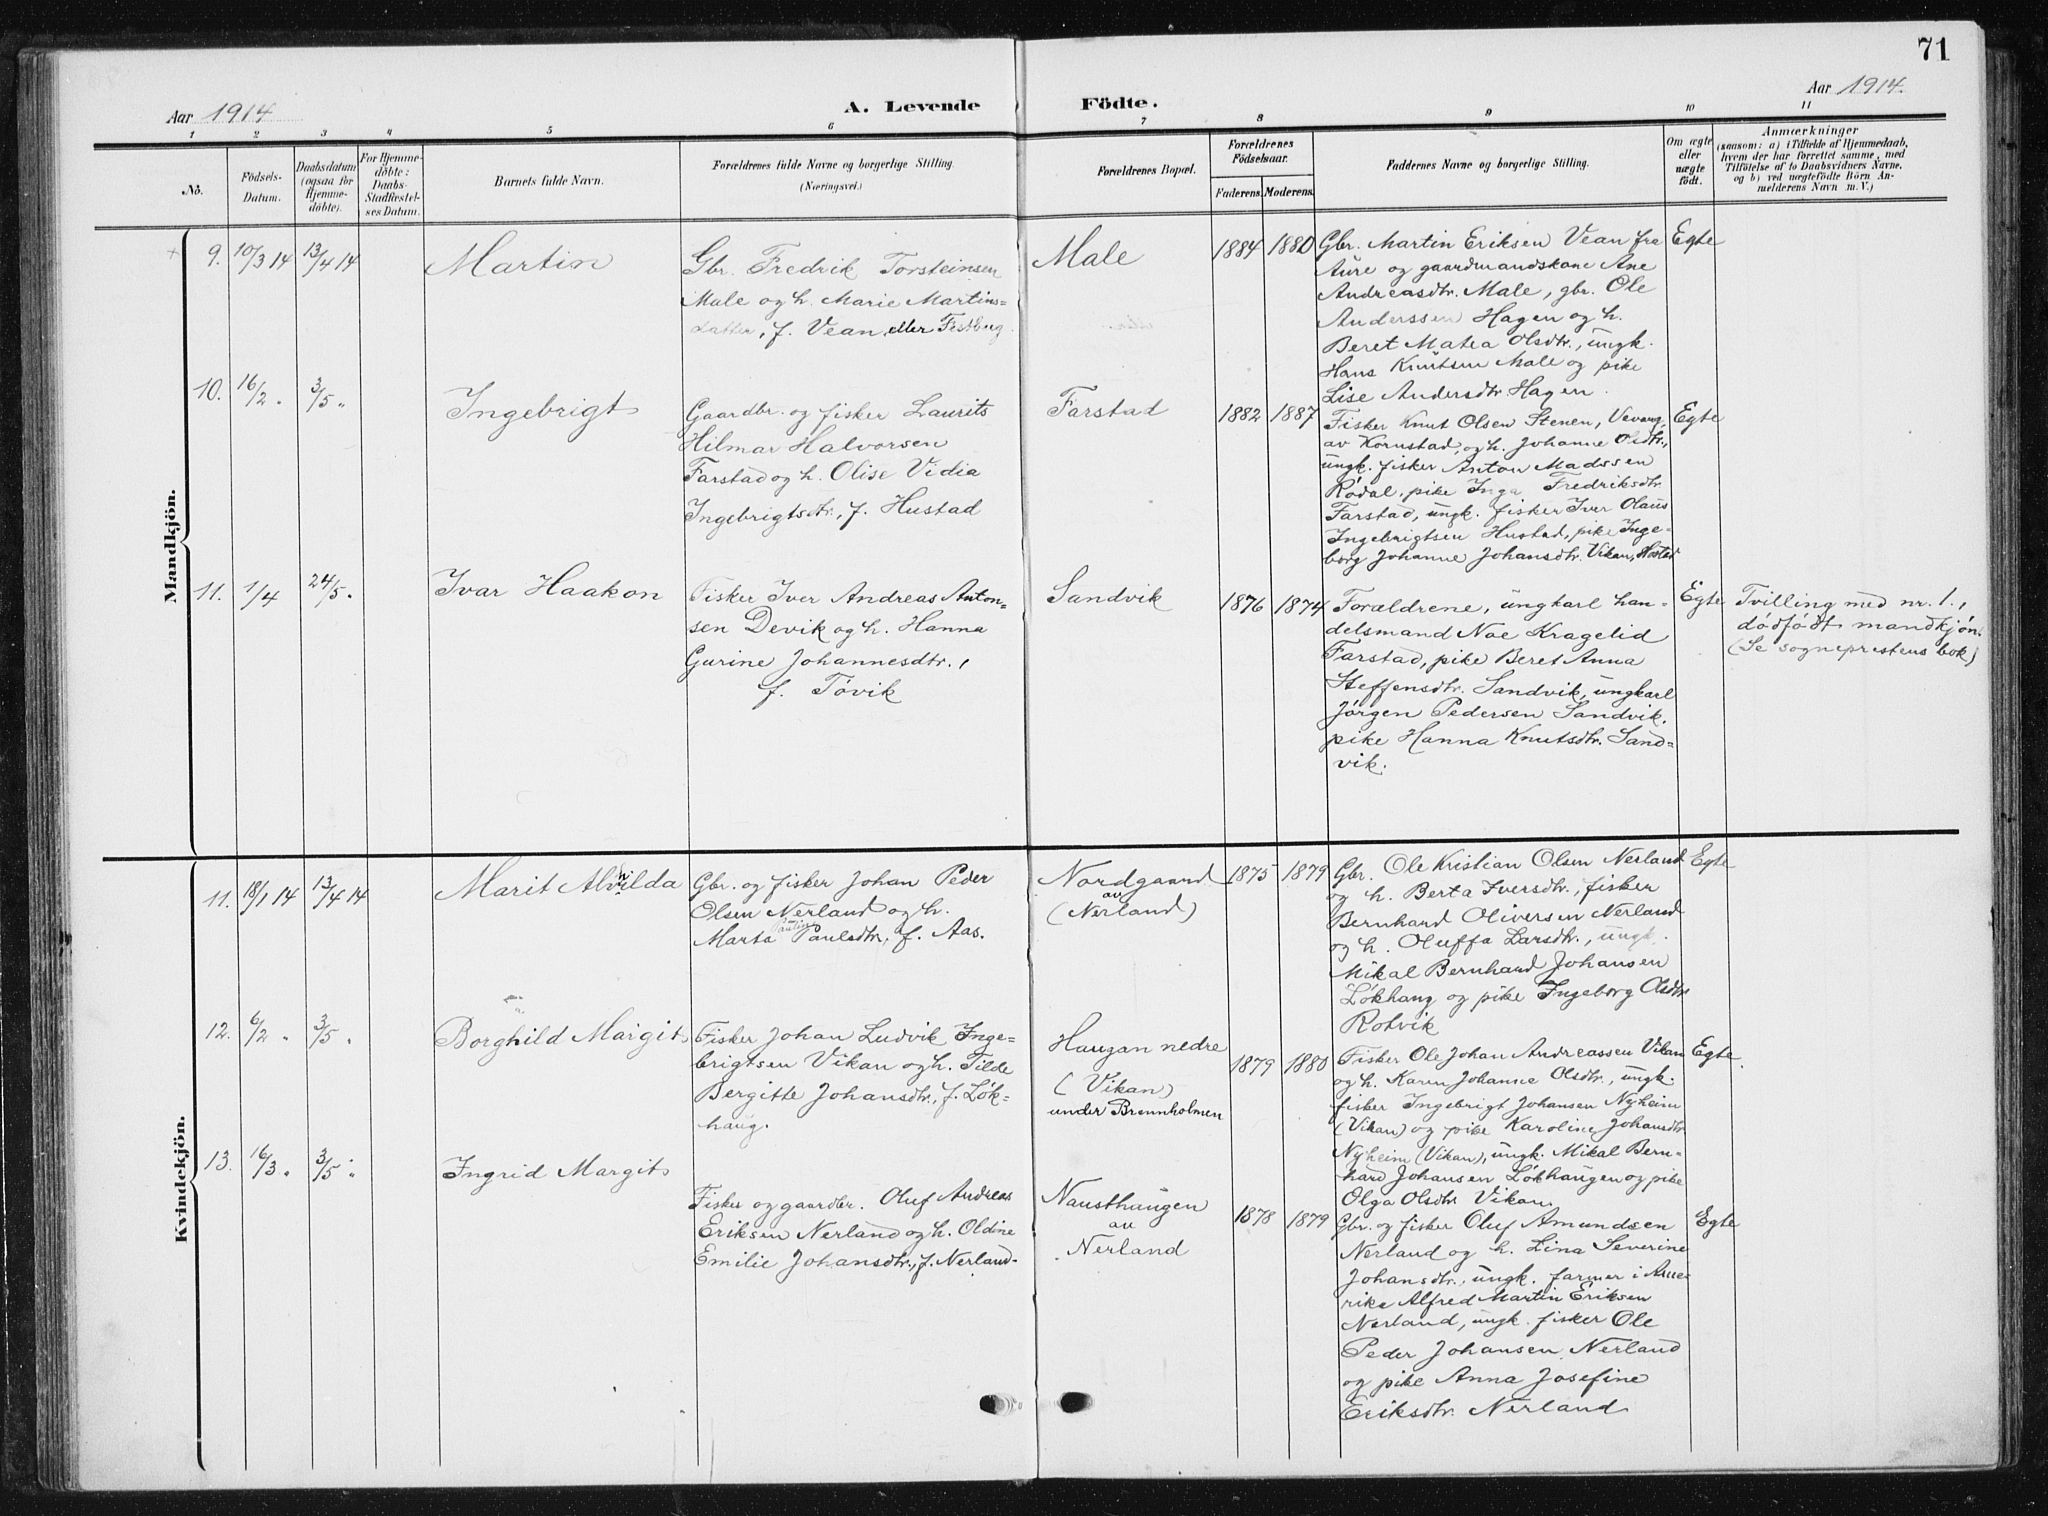 71
Aar 1914
A. Levende Födte.
Aar 1914.
1 2 3 4 5 6 7 8 9 10 11
No.
Födsels-
Datum.
Daabsdatum
(ogsaa for
Hjemme-
döbte).
For Hjemme-
döbte:
Daabs-
Stadfæstel-
ses Datum.
Barnets fulde Navn.
Forældrenes fulde Navne og borgerlige Stilling.
(Næringsvei.)
Forældrenes Bopæl.
Forældrenes
Födselsaar.
Faderens.
Moderens.
Faddernes Navne og borgerlige Stilling.
Om ægte
eller
uægte
födt.
Anmærkninger
(saasom: a) i Tilfælde af Hjemmedaab,
hvem der har forrettet samme, med
Tilföielse af to Daabsvidners Navne,
og b) ved uægtefödte Börn An-
melderens Navn m. V.)
Mandkjön.
9. 10/3 14 13/4 14
Martin
Gbr. Fredrik Torsteinsen
Male og h. Marie Martins=
datter, f. Vean, eller
Male
1884 1880
Gbr. Martin Eriksen Vean fra
Aure og gaardmandskone Ane
Andreasdtr. Male, gbr. Ole
Anderssen Hagen og h.
Beret Matea Olsdtr., ungk.
Hans Knutsen Male og pike
Lise Andersdtr Hagen.
Egte
10. 16/2 " 3/5 "
Ingebrigt
Gaardbr. og fisker Laurits
Hilmar Halvorsen
Farstad og h. Olise Vidia
Ingebrigtsdtr., f. Hustad
Farstad
1882 1887
Fisker Knut Olsen Stenen, Vevang,
av Kornstad, og h. Johanne Olsdtr.,
ungk. fisker Anton Madssen
Rødal, pike Inga Fredriksdtr.
Farstad, ungk. fisker Iver Olaus
Ingebrigtsen Hustad, pike Inge=
borg Johanne Johansdtr. Vikan, Hustad
Egte
11. 1/4 24/5 "
Ivar Haakon
Fisker Iver Andreas Anton=
sen Devik og h. Hanna
Gurine Johannesdtr.,
f. Tøvik
Sandvik
1876 1874
Forældrene, ungkarl han=
delsmand Noe Kragelid
Farstad, pike Beret Anna
Steffensdtr. Sandvik, ungkarl
Jørgen Pedersen Sandvik,
pike Hanna Knutsdtr. Sand=
vik.
Egte
Tvilling med nr. 1.,
dødfødt mandkjøn.
(Se sogneprestens bok)
Kvindekjön.
11. 18/1 14 13/4 14
Marit Alvhilda
Gbr. og fisker Johan Peder
Olsen Nerland og h.
Marta Pauline Paulsdtr., f. Aas.
Nordgaard
av
(Nerland)
1875 1879
Gbr. Ole Kristian Olsen Nerland
og h. Berta Iversdtr., fisker
Bernhard Oliversen Nerland
og h. Oluffa Larsdtr., ungk.
Mikal Bernhard Johansen
Løkhaug og pike Ingeborg Olsdtr
Rotvik
Egte
12. 6/2 " 3/5 "
Borghild Margit
Fisker Johan Ludvik Inge=
brigtsen Vikan og h. Tilde
Bergitte Johansdtr., f. Løk=
haug.
Haugan nedre
(Vikan)
under Brennholmen
1879 1880
Fisker Ole Johan Andreassen Vikan
og h. Karen Johanne Olsdtr., ungk.
fisker Ingebrigt Johansen Nyheim
(Vikan) og pike Karoline Johansdtr
Nyheim (Vikan), ungk. Mikal Bern=
hard Johansen Løkhaugen og pike
Olga Olsdtr Vikan.
Egte
13. 16/3 " 3/5 "
Ingrid Margit
Fisker og gaardbr. Oluf Andreas
Eriksen Nerland og h. Oldine
Emilie Johansdtr., f. Nerland.
Nausthaugen
av
Nerland
1878 1879
Gbr. og fisker Oluf Amundsen
Nerland og h. Lina Severine
Johansdtr., ungk. farmer i Ame=
rika Alfred Martin Eriksen
Nerland, ungk. fisker Ole
Peder Johansen Nerland
og pike Anna Josefine
Eriksdtr. Nerland
Egte